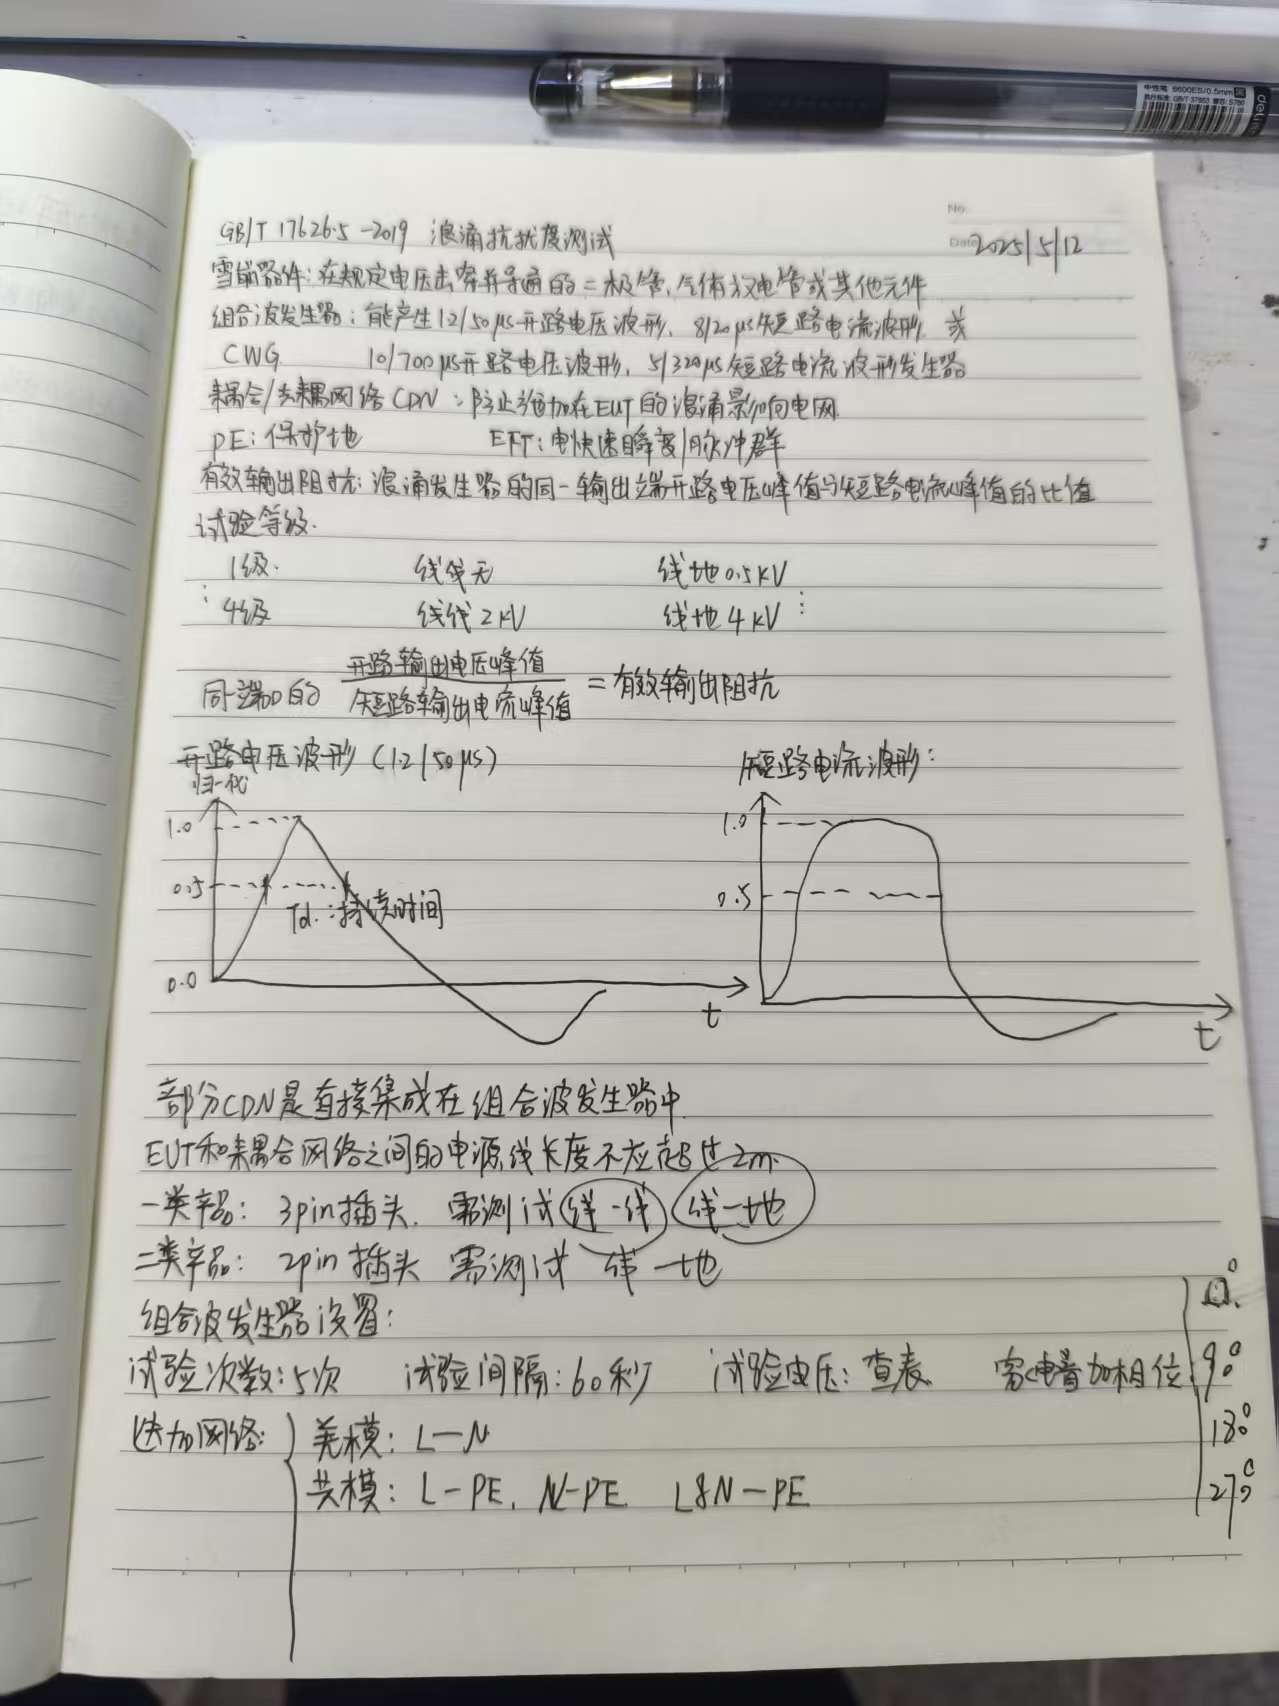 中性笔 6600ES/0.5mm 黑
deli
No.
Date 2025/5/12
GB/T 17626.5-2019 浪涌抗扰度测试
雪崩器件：在规定电压击穿并导通的二极管、气体放电管或其他元件
组合波发生器：能产生1.2/50μs开路电压波形、8/20μs短路电流波形 或
CWG 10/700μs开路电压波形、5/320μs短路电流波形发生器
耦合/去耦网络CDN：防止施加在EUT的浪涌影响电网
PE：保护地 EFT：电快速瞬变/脉冲群
有效输出阻抗：浪涌发生器的同一输出端开路电压峰值与短路电流峰值的比值
试验等级.
1级. 线线无 线地0.5kV
⋮ 4级 线线2kV 线地4kV ⋮
开路输出电压峰值
同一端口的 = 有效输出阻抗
短路输出电流峰值
开路电压波形（1.2/50μs） 短路电流波形：
归一化
1.0
0.5
Td：持续时间
0.0
t
1.0
0.5
t
部分CDN是直接集成在组合波发生器中
EUT和耦合网络之间的电源线长度不应超过2m
一类产品：3pin插头. 需测试 线-线 线-地
二类产品：2pin插头 需测试 线-地
组合波发生器设置：
试验次数：5次 试验间隔：60秒 试验电压：查表
0°
90°
180°
270°
差模：L-N
共模：L-PE、N-PE L&N-PE